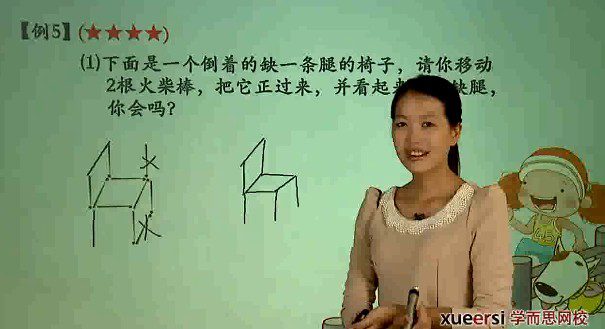 【例5】(★★★★)
(1)下面是一个倒着的缺一条腿的椅子，请你移动
2根火柴棒，把它正过来，并看起来 缺腿，
你会吗？
xueersi 学而思网校